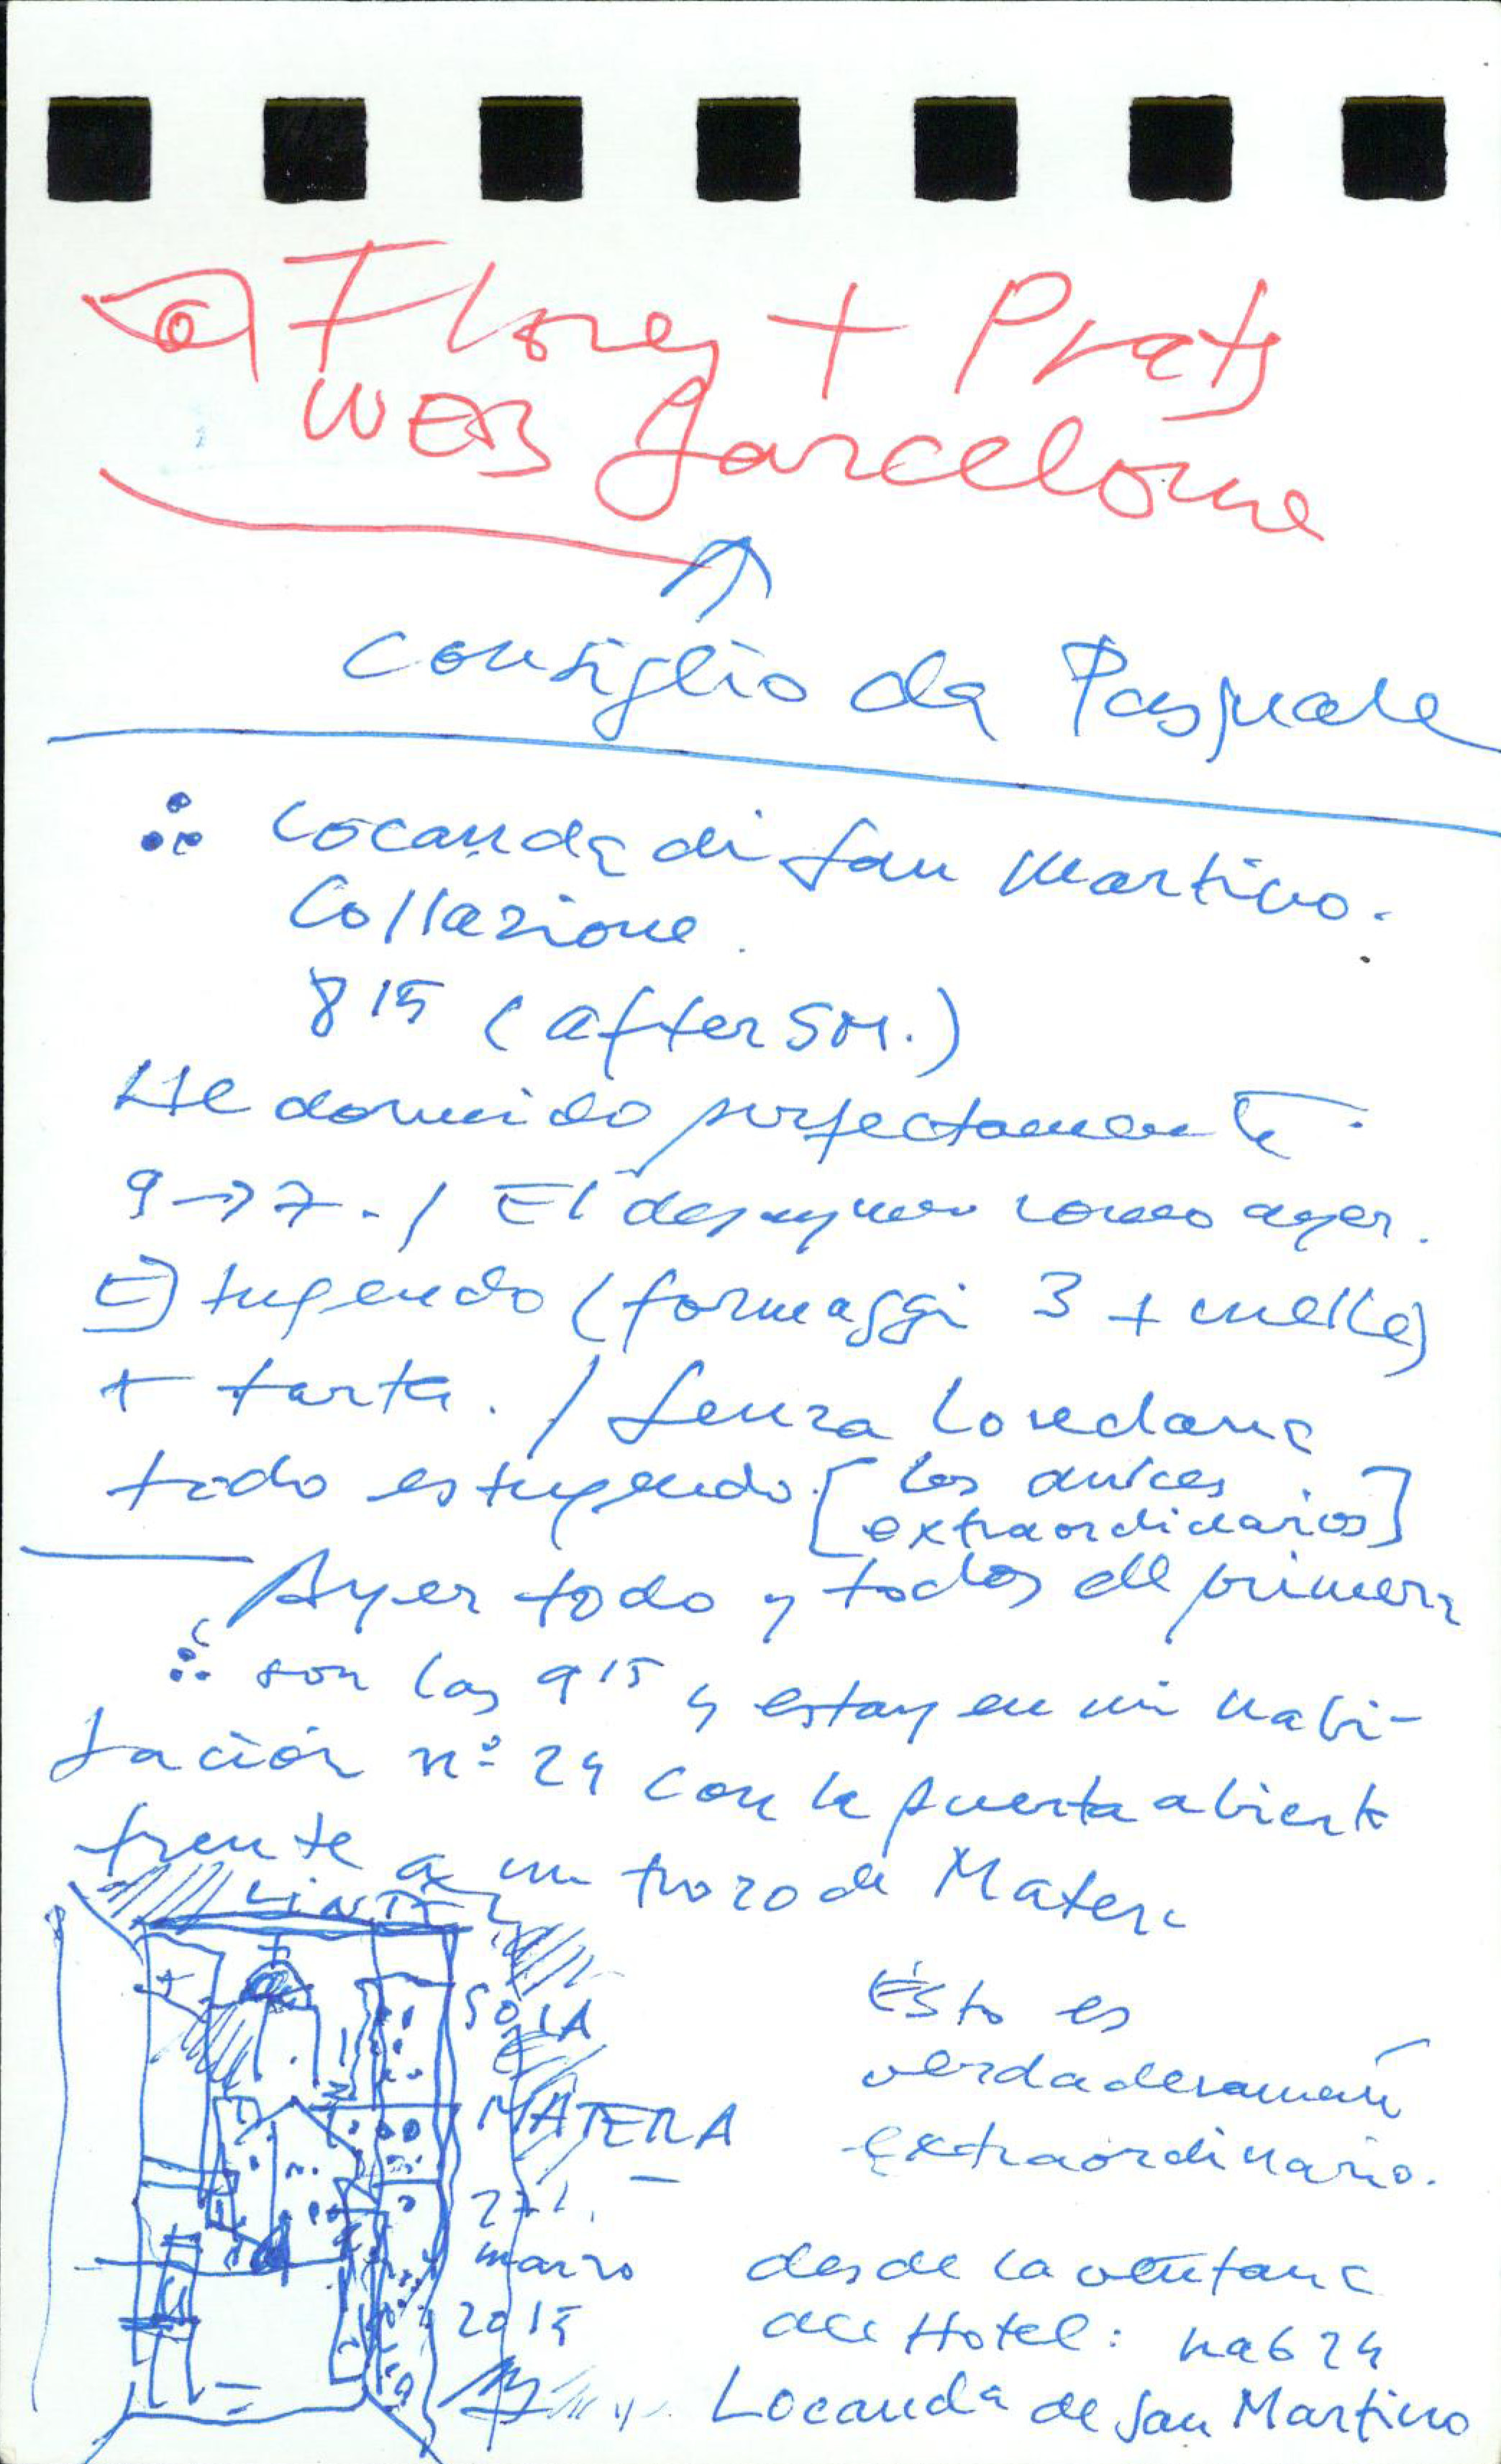 Flores + Prats
WEB Barcelona
consiglio da Pasquale
Locanda di San Martino.
Collazione
8 15 (after SM.)
He dormido perfectamente.
9 → 7. / El desayuno como ayer.
Estupendo (formaggi 3 + mielle)
+ tarta. / Senza Loredana
todo estupendo. [los dulces
extraordinarios]
Ayer todo y todos de primera
son las 9 15 y estoy en mi habi-
tación nº 24 con la puerta abierta
frente a un trozo de Matera
LINTEL
Esto es
verdaderamente
extraordinario.
MATERA
27
marzo
desde la ventana
del Hotel: hab 24
Locanda de San Martino